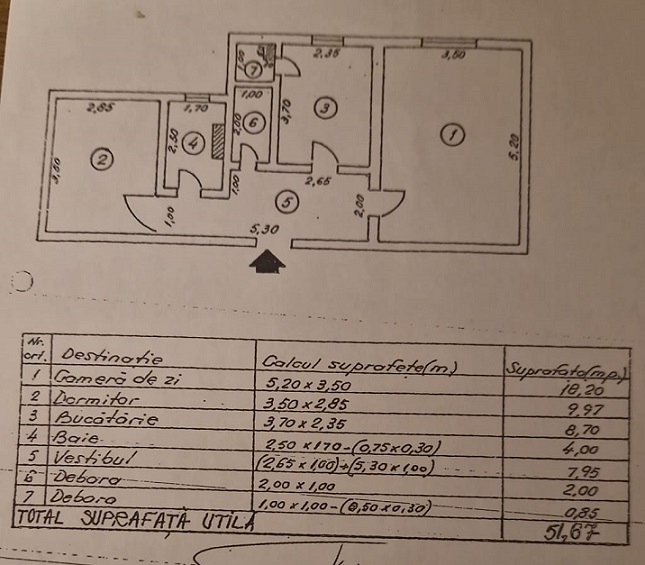 2,35
3,50
1,00
7
2,85
1,70
1,00
3,70
3
1
5,20
2,50
4
2,00
6
2
3,50
1,00
2,65
5
2,00
1,00
5,30
Nr. crt. Destinație Calcul suprafețe(m) Suprafața(mp.)
1 Cameră de zi 5,20 x 3,50 18,20
2 Dormitor 3,50 x 2,85 9,97
3 Bucătărie 3,70 x 2,35 8,70
4 Baie 2,50 x 1,70 - (0,75 x 0,30) 4,00
5 Vestibul (2,65 x 1,00)+(5,30 x 1,00) 7,95
6 Debara 2,00 x 1,00 2,00
7 Debara 1,00 x 1,00 - (0,50 x 0,30) 0,85
TOTAL SUPRAFAȚĂ UTILĂ 51,67